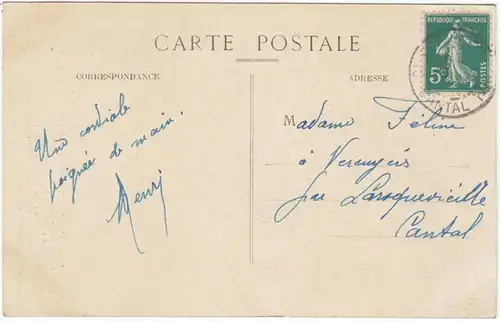 CARTE POSTALE
CORRESPONDANCE
ADRESSE
REPUBLIQUE FRANÇAISE
5c
POSTES
CANTAL
Une cordiale
poignée de main.
Henri
Madame Féline
à
par Laroquevieille
Cantal